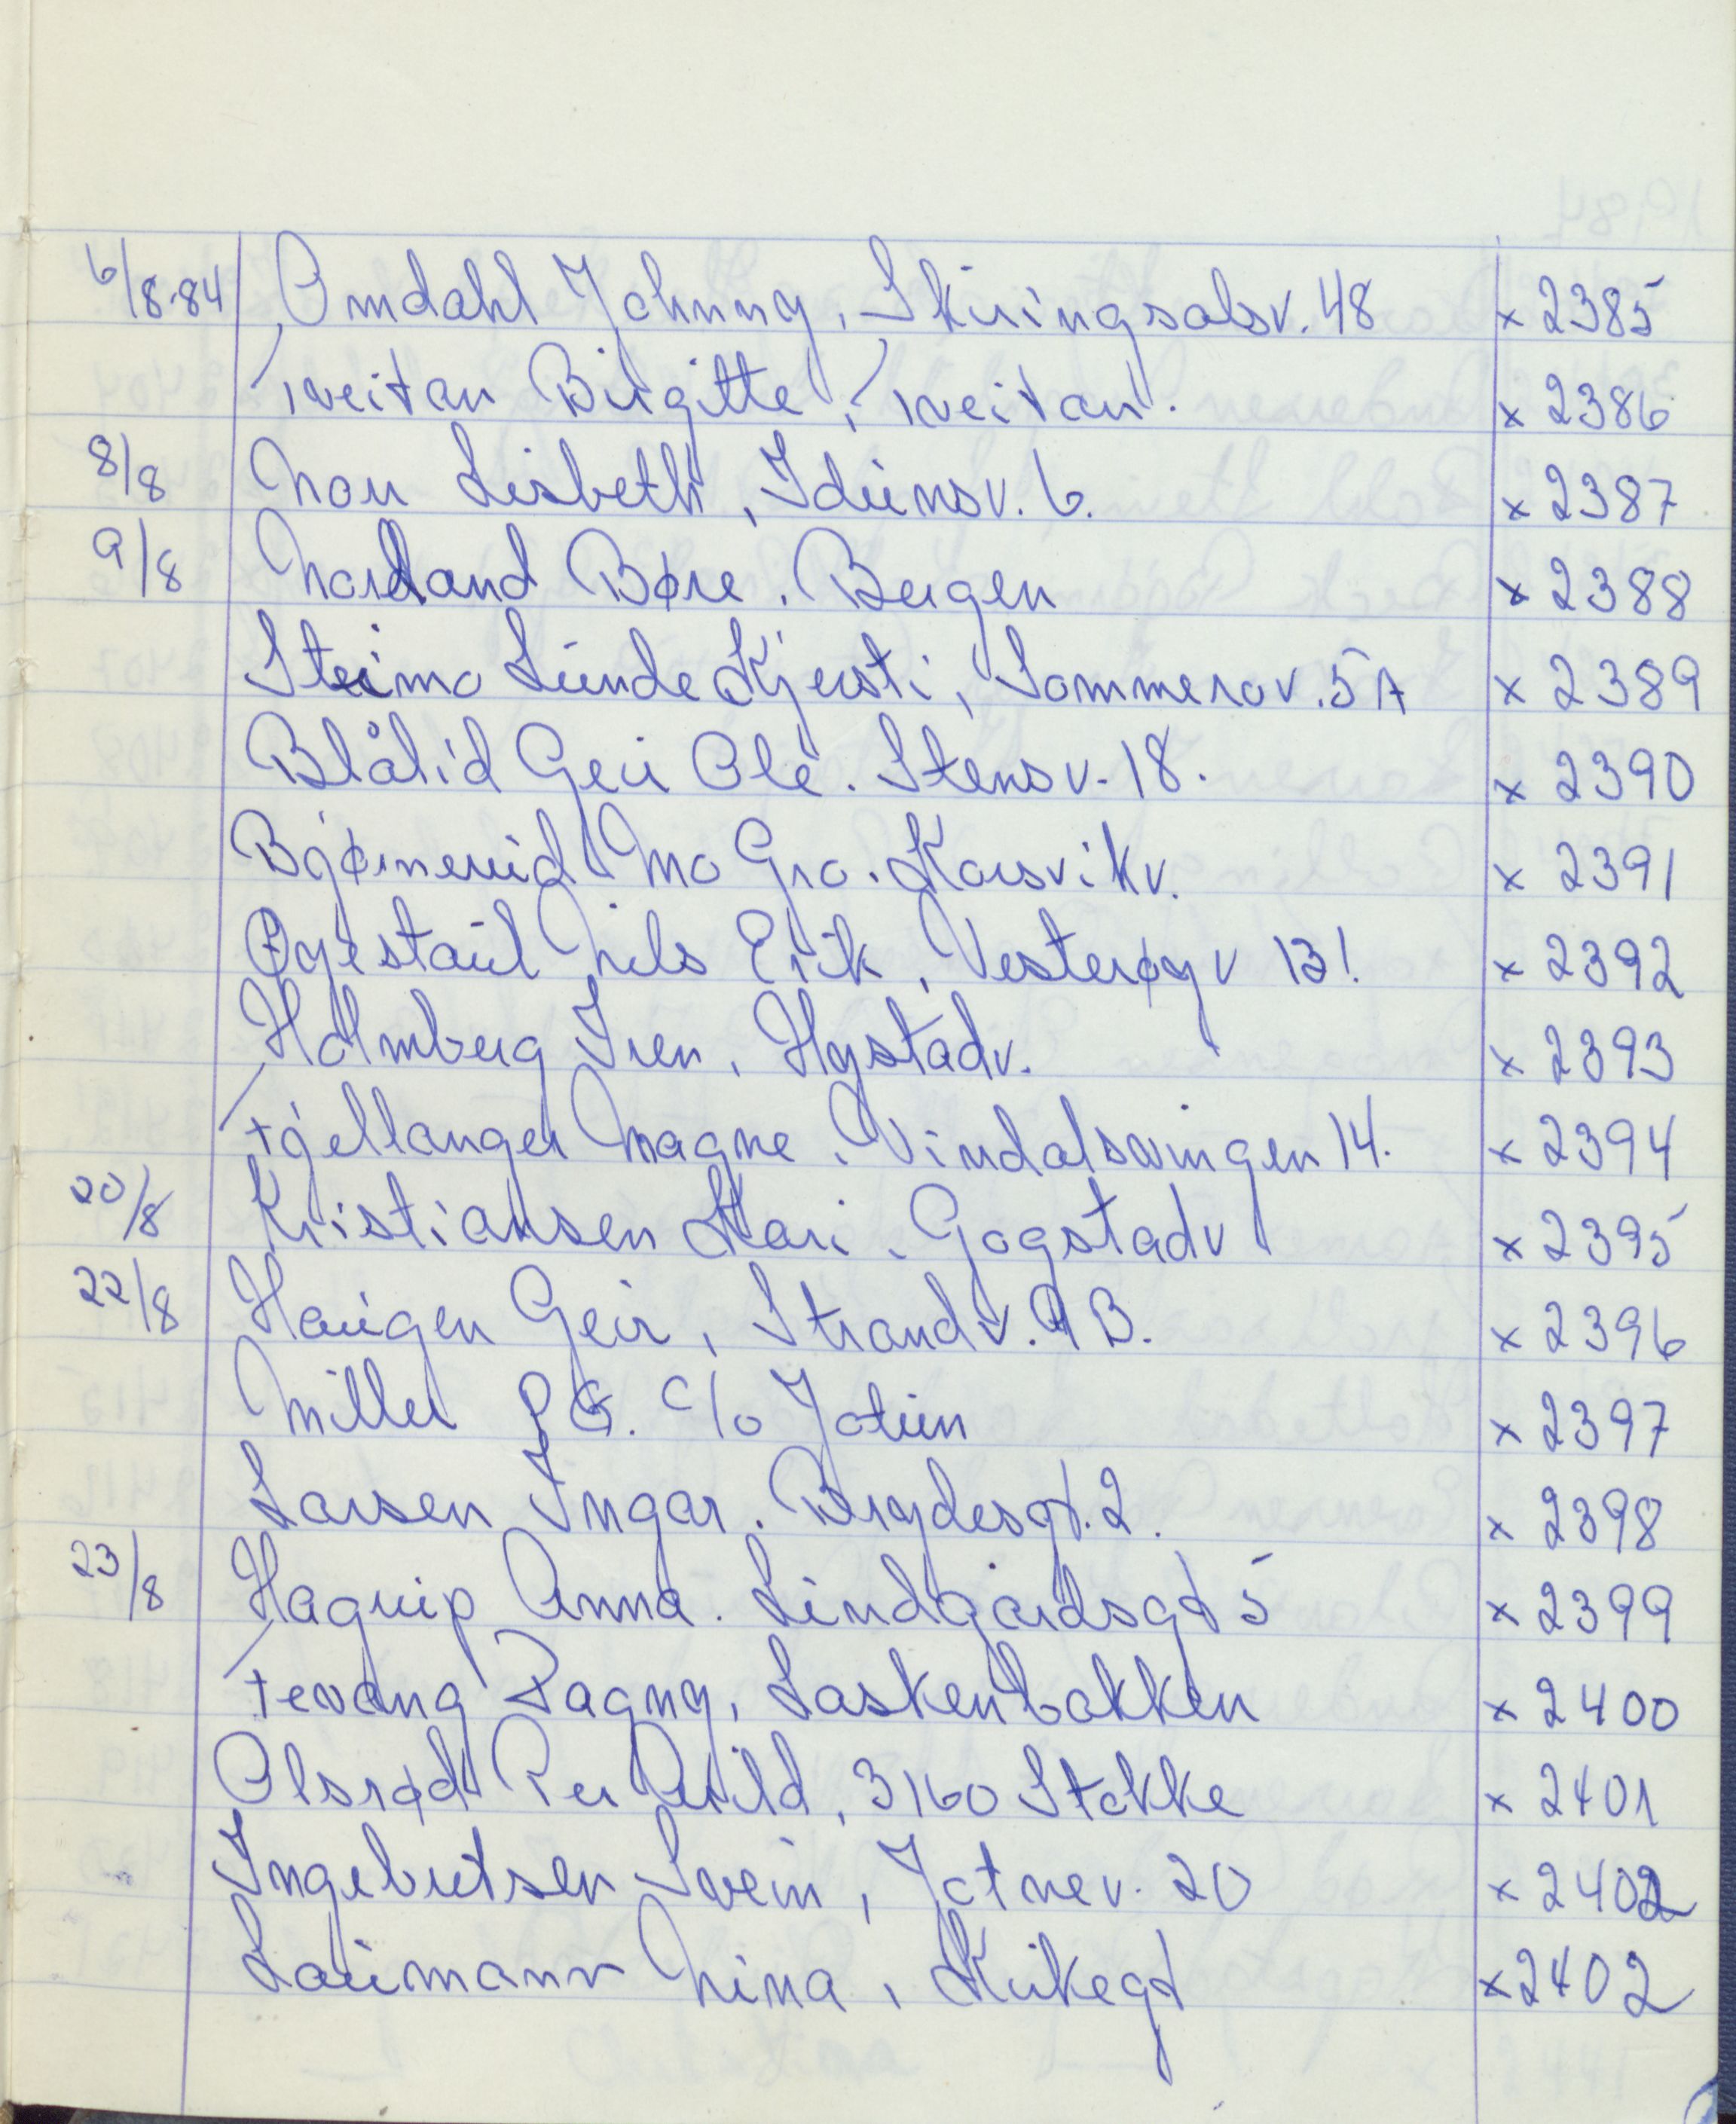 6/8-84 Omdahl Johnny, Skiringsalsv. 48 x 2385
Tveitan Birgitte, Tveitan. x 2386
8/8 Mou Lisbeth, Idunsv. 6. x 2387
9/8 Nordland Børe. Bergen x 2388
Steimo Lunde Kjersti, Sommerov. 5A x 2389
Blålid Geir Ole. Stensv. 18. x 2390
Bjørnerud Mo Gro. Korsvikv. x 2391
Øyestaul Nils Erik, Vesterøyv 13! x 2392
Holmberg Iren, Hystadv. x 2393
Fjellanger Magne. Vindalsvingen 14. x 2394
20/8 Kristiansen Kari. Gogstadv x 2395
22/8 Haugen Geir, Strandv. 9B. x 2396
Miller P.G. c/o Jotun x 2397
Larsen Ingar. Brydesgt. 2. x 2398
23/8 Hagrip Anna. Lindgårdsgt 5 x 2399
Tevang Dagny, Laskenbakken x 2400
Olsrød Per Arild, 3160 Stokke x 2401
Ingebretsen Svein, Jotnev. 20 x 2402
Laumann Nina, Kirkegt x 2402